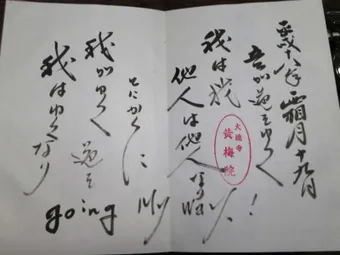 平成十八年 霜月十九日
吾が道をゆく!
我は我
他人は他人なり
大徳寺
黄梅院
とにかくに
我がゆく道を
我はゆくなり
going